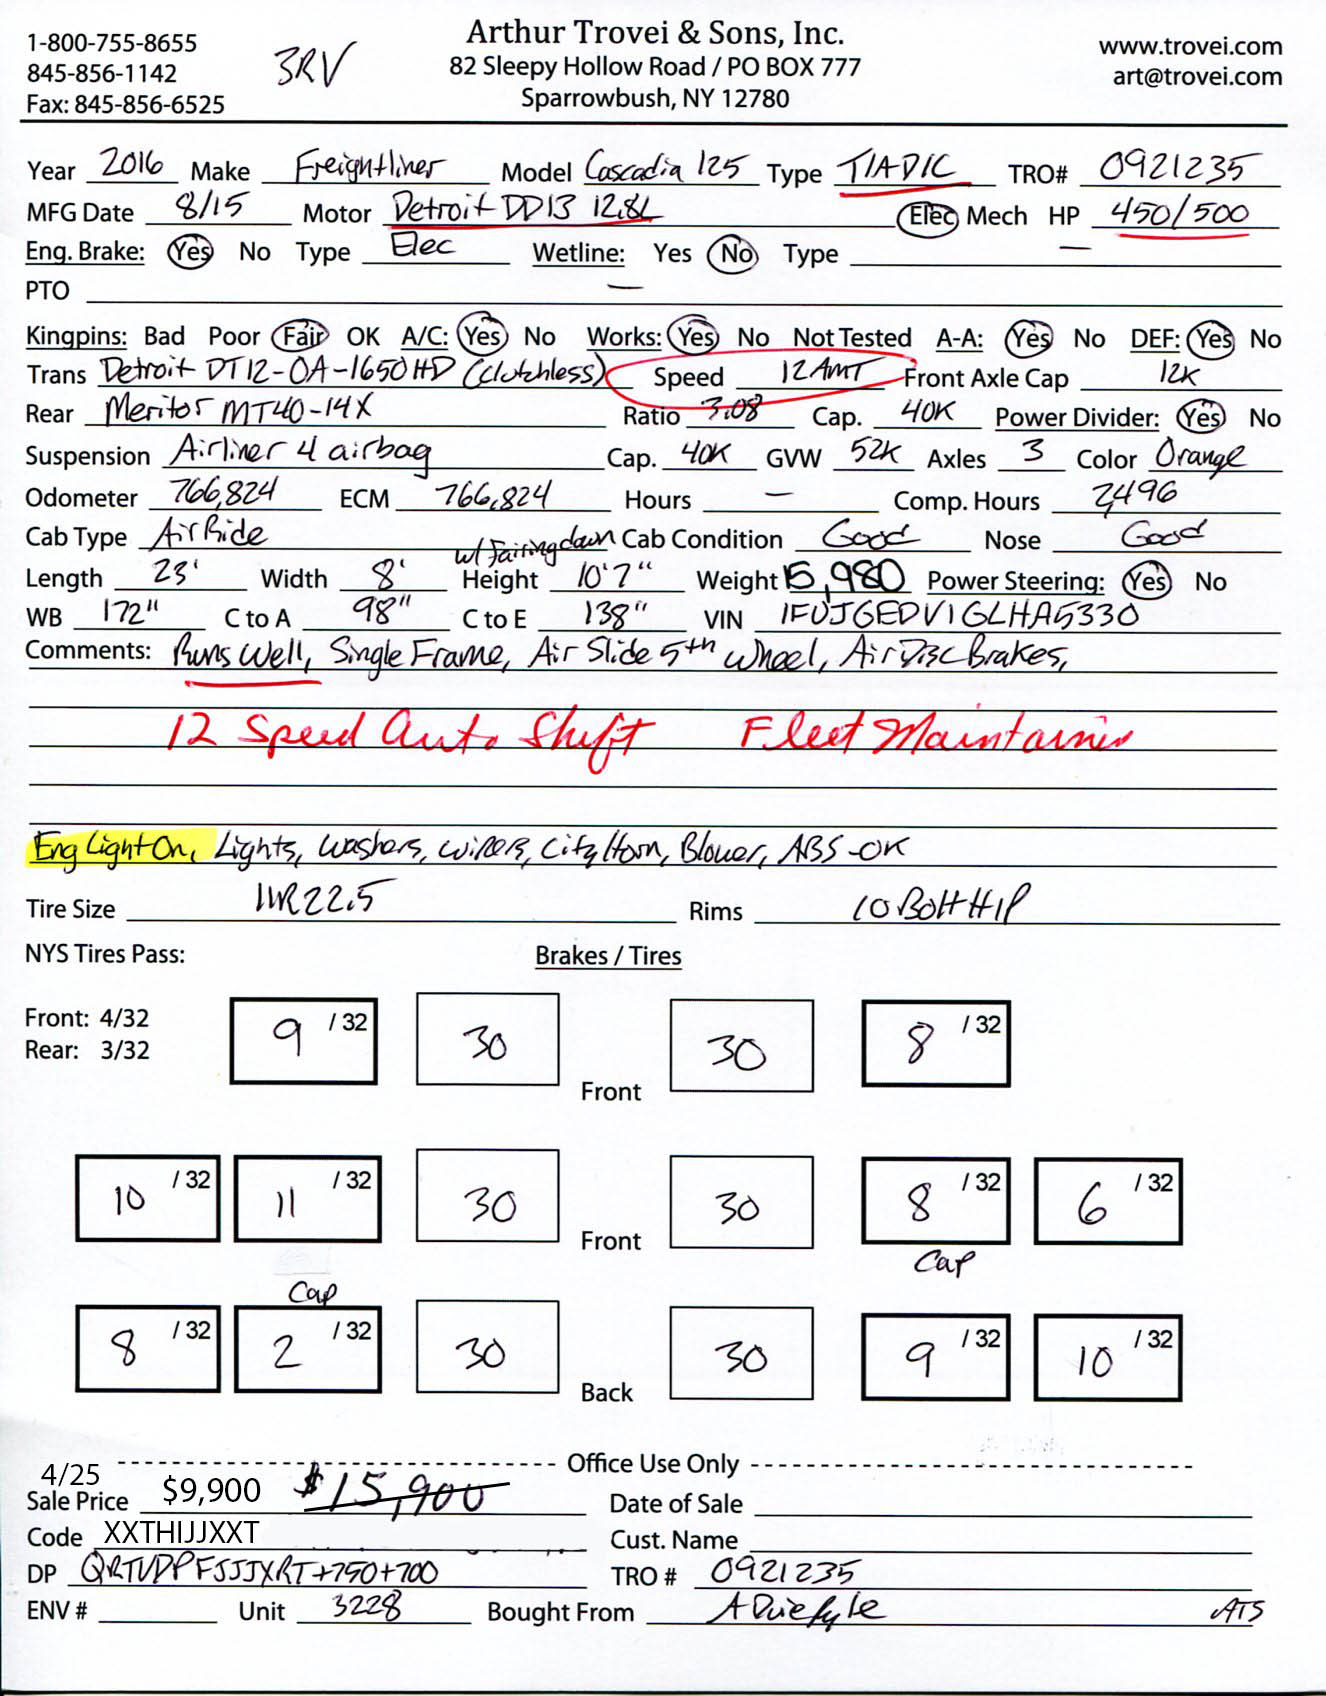 1-800-755-8655
845-856-1142
Fax: 845-856-6525
3RV
Arthur Trovei & Sons, Inc.
82 Sleepy Hollow Road / PO BOX 777
Sparrowbush, NY 12780
www.trovei.com
art@trovei.com
Year 2016 Make Freightliner Model Cascadia 125 Type T/A D/C TRO# 0921235
MFG Date 8/15 Motor Detroit DD13 12.8L Elec Mech HP 450/500
Eng. Brake: Yes No Type Elec Wetline: Yes No Type —
PTO —
Kingpins: Bad Poor Fair OK A/C: Yes No Works: Yes No Not Tested A-A: Yes No DEF: Yes No
Trans Detroit DT12-OA-1650HD (Clutchless) Speed 12 AMT Front Axle Cap 12K
Rear Meritor MT40-14X Ratio 3.08 Cap. 40K Power Divider: Yes No
Suspension Airliner 4 airbag Cap. 40K GVW 52K Axles 3 Color Orange
Odometer 766,824 ECM 766,824 Hours — Comp. Hours 2,496
Cab Type Air Ride Cab Condition Good Nose Good
Length 23' Width 8' w/ Fairing down Height 10'7" Weight 15,980 Power Steering: Yes No
WB 172" C to A 98" C to E 138" VIN 1FUJGEDV1GLHA5330
Comments: Runs Well, Single Frame, Air Slide 5th Wheel, Air Disc Brakes,
12 Speed Auto Shift Fleet Maintained
Eng Light On, Lights, Washers, Wipers, City Horn, Blower, ABS-OK
Tire Size 11R22.5 Rims 10 Bolt H/P
NYS Tires Pass: Brakes / Tires
Front: 4/32
Rear: 3/32
9 /32 30 30 8 /32
Front
10 /32 11 /32 30 30 8 /32 6 /32
Front
Cap
Cap
8 /32 2 /32 30 30 9 /32 10 /32
Back
Office Use Only
4/25
Sale Price $9,900 $15,900 Date of Sale
Code XXTHIJJXXT Cust. Name
DP QRTVDPFJJJXRT+750+700 TRO # 0921235
ENV # Unit 3228 Bought From ATS